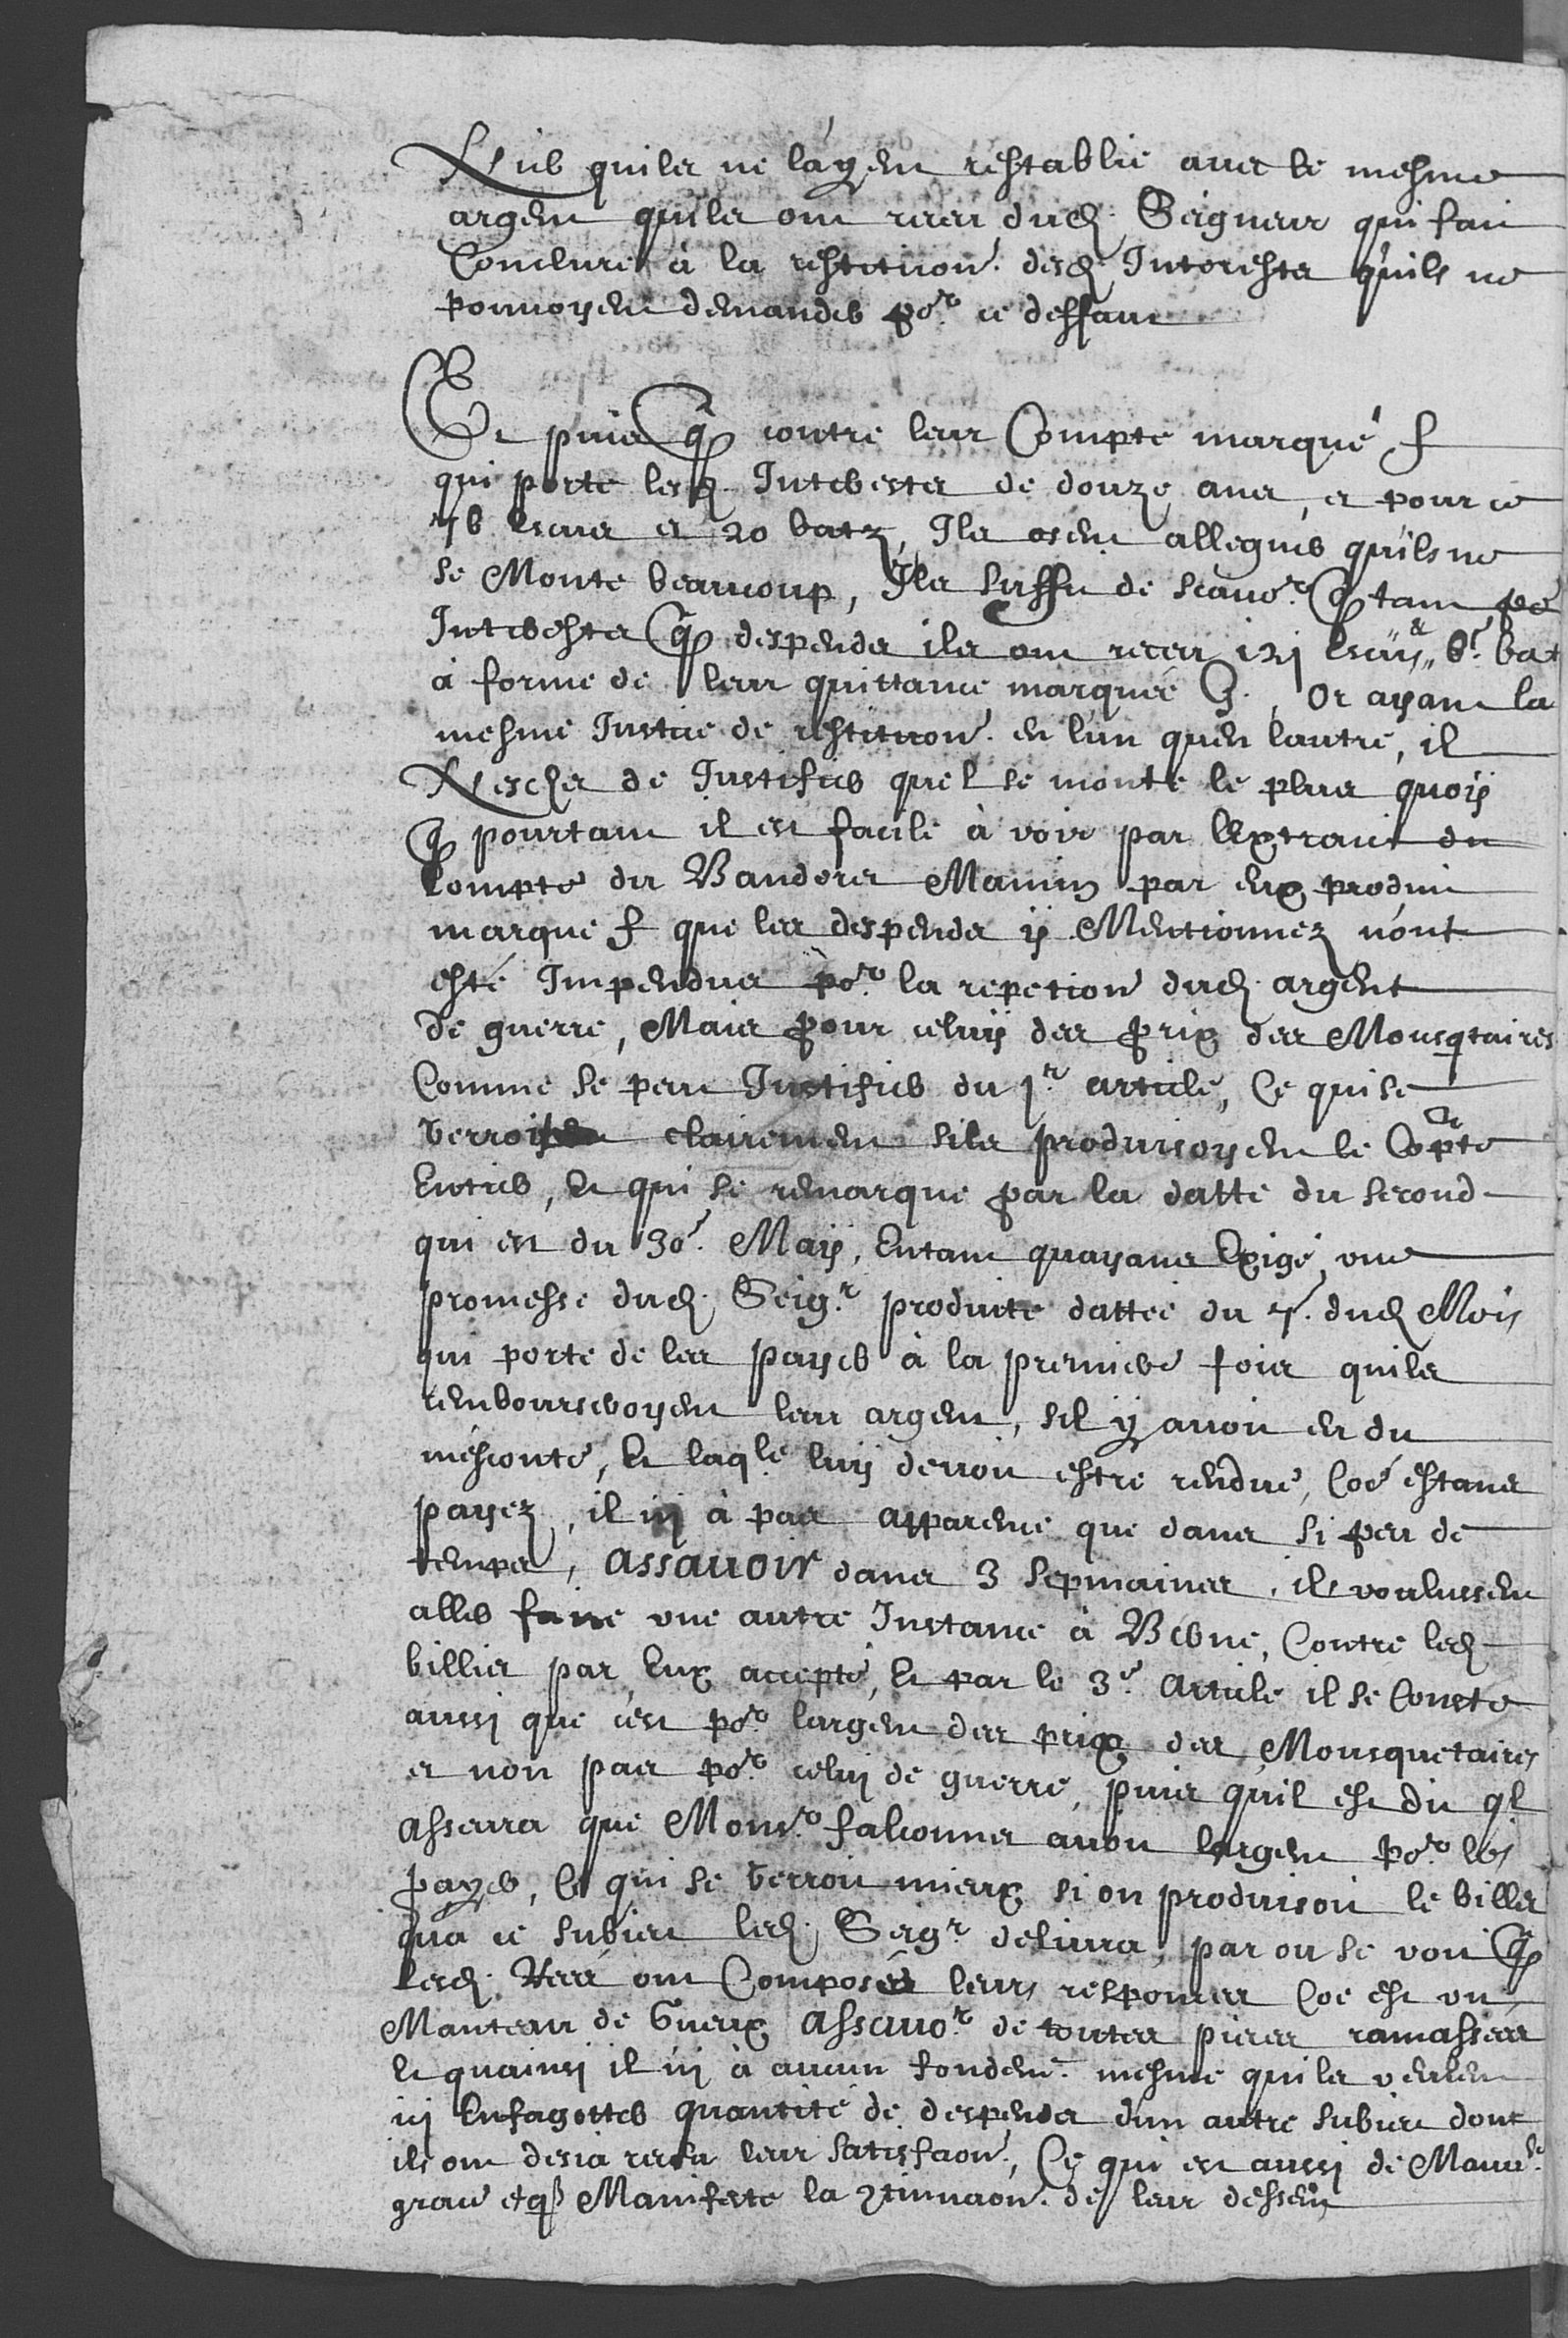 qu'ils ne l'ayent restablie avec le mesme
argent qu'ils ont receu dud. Seigneur qui fait
Conclure à la restituon. desd. Interests qu'ils ne
pouvoyent demander por. ce deffaut
Et puis q contre leur Compte marqué f
qui porte lesd. Interests de douze ans, et pour ce
escus et 20 batz, Ils osent alleguer qu'ils ne
se Monte beaucoup, Ils suffit de scavor. q tant po
Interests q despends ils ont receu 121 escus & 6. bat
à forme de leur quittance marquée G. Or ayant la
mesme Justice de restituon. en l'un qu'en l'autre, il
de Justifier quel se monte le plus quoy
q pourtant il est facile à voir par l'Extraict du
Compte du Banderet Mannin par eux produit
marqué f que les despends y Mentionnez n'ont
esté Impendus por. la repetion dud. argent
de guerre, Mais pour celuy des prix des Mousqtaires
Comme se peut Justifier du 1r. article, Ce qui se
verroit clairement s'ils produisoyent le Copte
Entier, Et qui se remarque par la datte du second
qui est du 30e. May, Entant qu'ayans Exigé une
promesse dud. Seigr. produite dattée du 7. dud Mois
qui porte de les payer à la premiere fois qu'ils
rembourseroyent leur argent, s'il y avoit eu du
mesconte, Et laqle luy devoit estre rendue, Coe estans
payez, il ni à pas apparence que dans si peu de
temps, assavoir dans 3 sepmaines, ils voulussent
aller faire une autre Instance à Berne, Contre led
billiet par Eux accepté, Et par le 3e. Article il se Conste
aussi que c'est por. l'argent des prix des Mousquetaires
et non pas por. celui de guerre, puis qu'il est dit ql
asseura que Monsr. falconnet avoit l'argent por. les
payer, Ce qui se verroit mieux si on produisoit le billet
qu'a ce subiect led. Seigr. delivra, par ou se voit q
lesd. ont Composés leurs responces Coe est un
Manteau de Gueux Assavor. de toutes pieces ramassées
Et qu'ainsi il ni à aucun fondemt. mesme qu'ils veulent
ici Enfagotter quantité de despends d'un autre subiect dont
ils ont desia receu leur satisfaon., Ce qui est aussi de Mauvse.
grace et q Manifeste la continuaon. de leur dessein